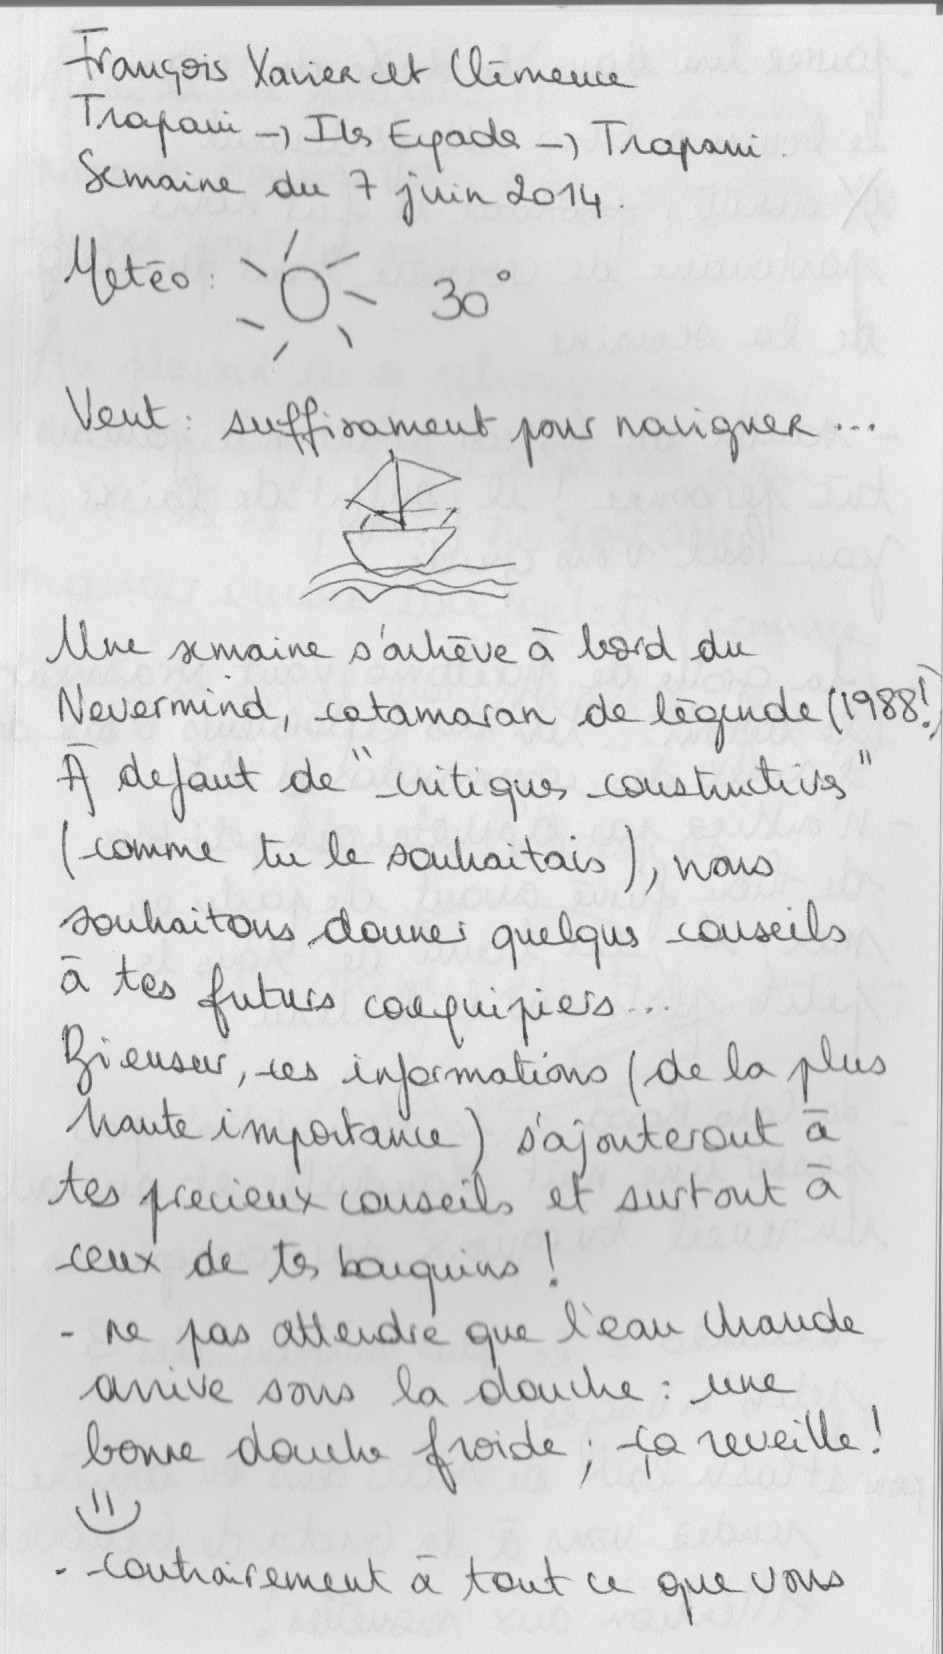 François Xavier et Clémence
Trapani → Iles Egades → Trapani.
Semaine du 7 juin 2014.
Météo : 30°
Vent : suffisament pour naviguer ...
Une semaine s'achève à bord du
Nevermind, catamaran de légende (1988!)
À defaut de "critiques constructives"
(comme tu le souhaitais), nous
souhaitons donner quelques conseils
à tes futurs coequipiers...
Biensur, ces informations (de la plus
haute importance) s'ajouteront à
tes precieux conseils et surtout à
ceux de tes bouquins !
- ne pas attendre que l'eau chaude
arrive sous la douche : une
bonne douche froide ; ça reveille !
- contrairement à tout ce que vous